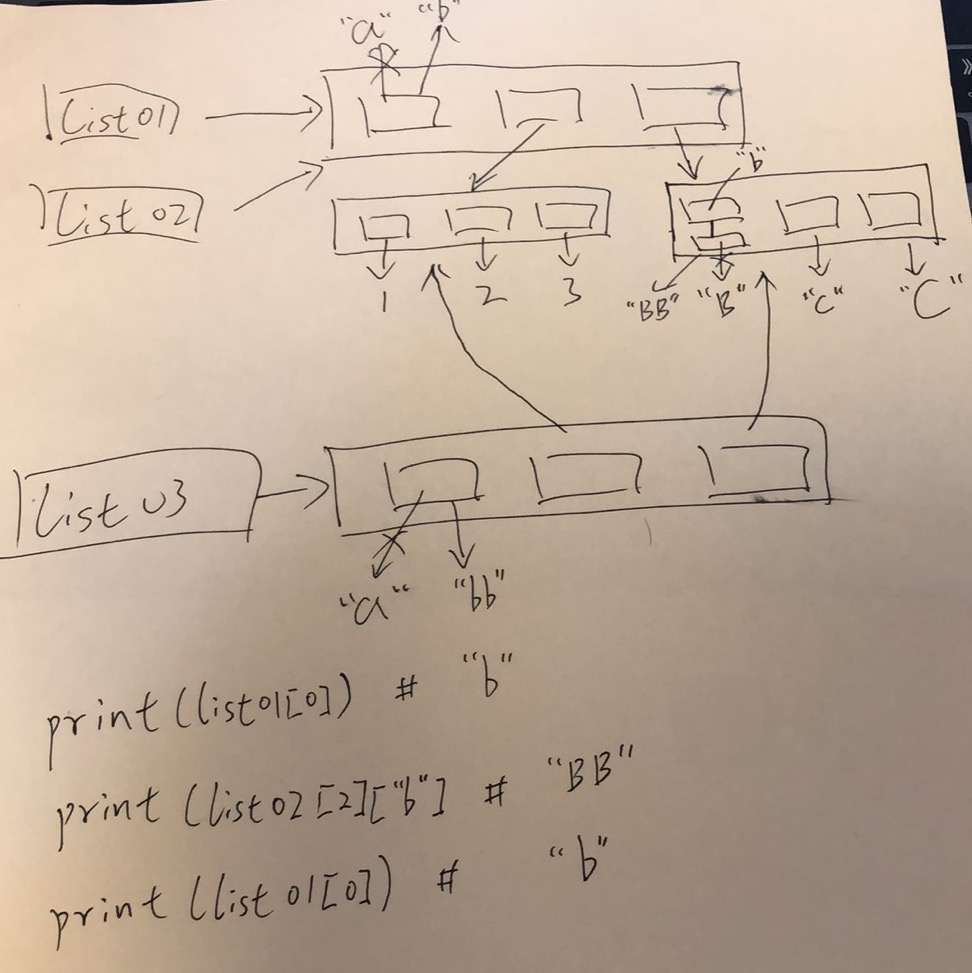 "a" "b"
list01
list02
"b"
1 2 3 "BB" "B" "c" "C"
list03
"a" "bb"
print (list01[0]) # "b"
print (list02[2]["b"] # "BB"
print (list01[0]) # "b"